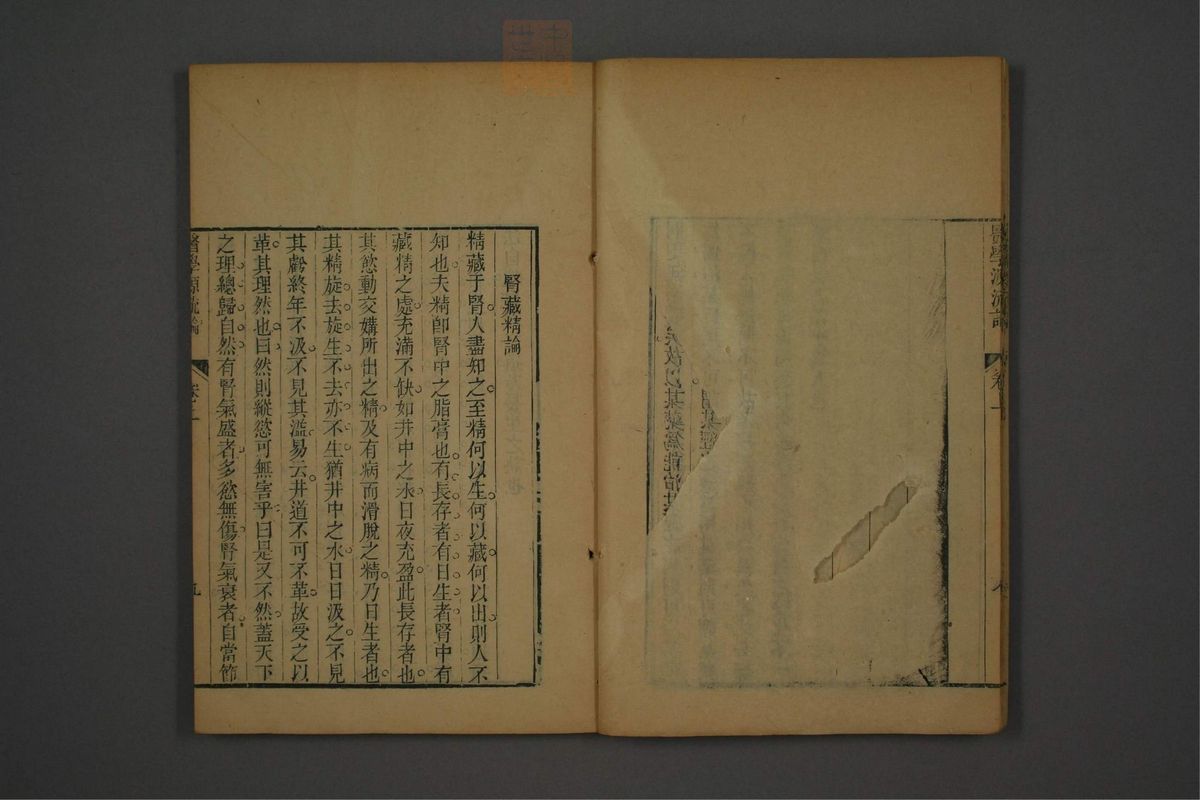 醫學源流論
卷一
天故以某藥爲能治某
謂某經
腎藏精論
精藏于腎人盡知之至精何以生何以藏何以出則人不
知也夫精卽腎中之脂膏也有長存者有日生者腎中有
藏精之處充滿不缺如井中之水日夜充盈此長存者也
其慾動交媾所出之精及有病而滑脫之精乃日生者也
其精旋去旋生不去亦不生猶井中之水日日汲之不見
其虧終年不汲不見其溢易云井道不可不革故受之以
革其理然也曰然則縱慾可無害乎曰是又不然蓋天下
之理總歸自然有腎氣盛者多慾無傷腎氣衰者自當節
醫學源流論
卷一
九